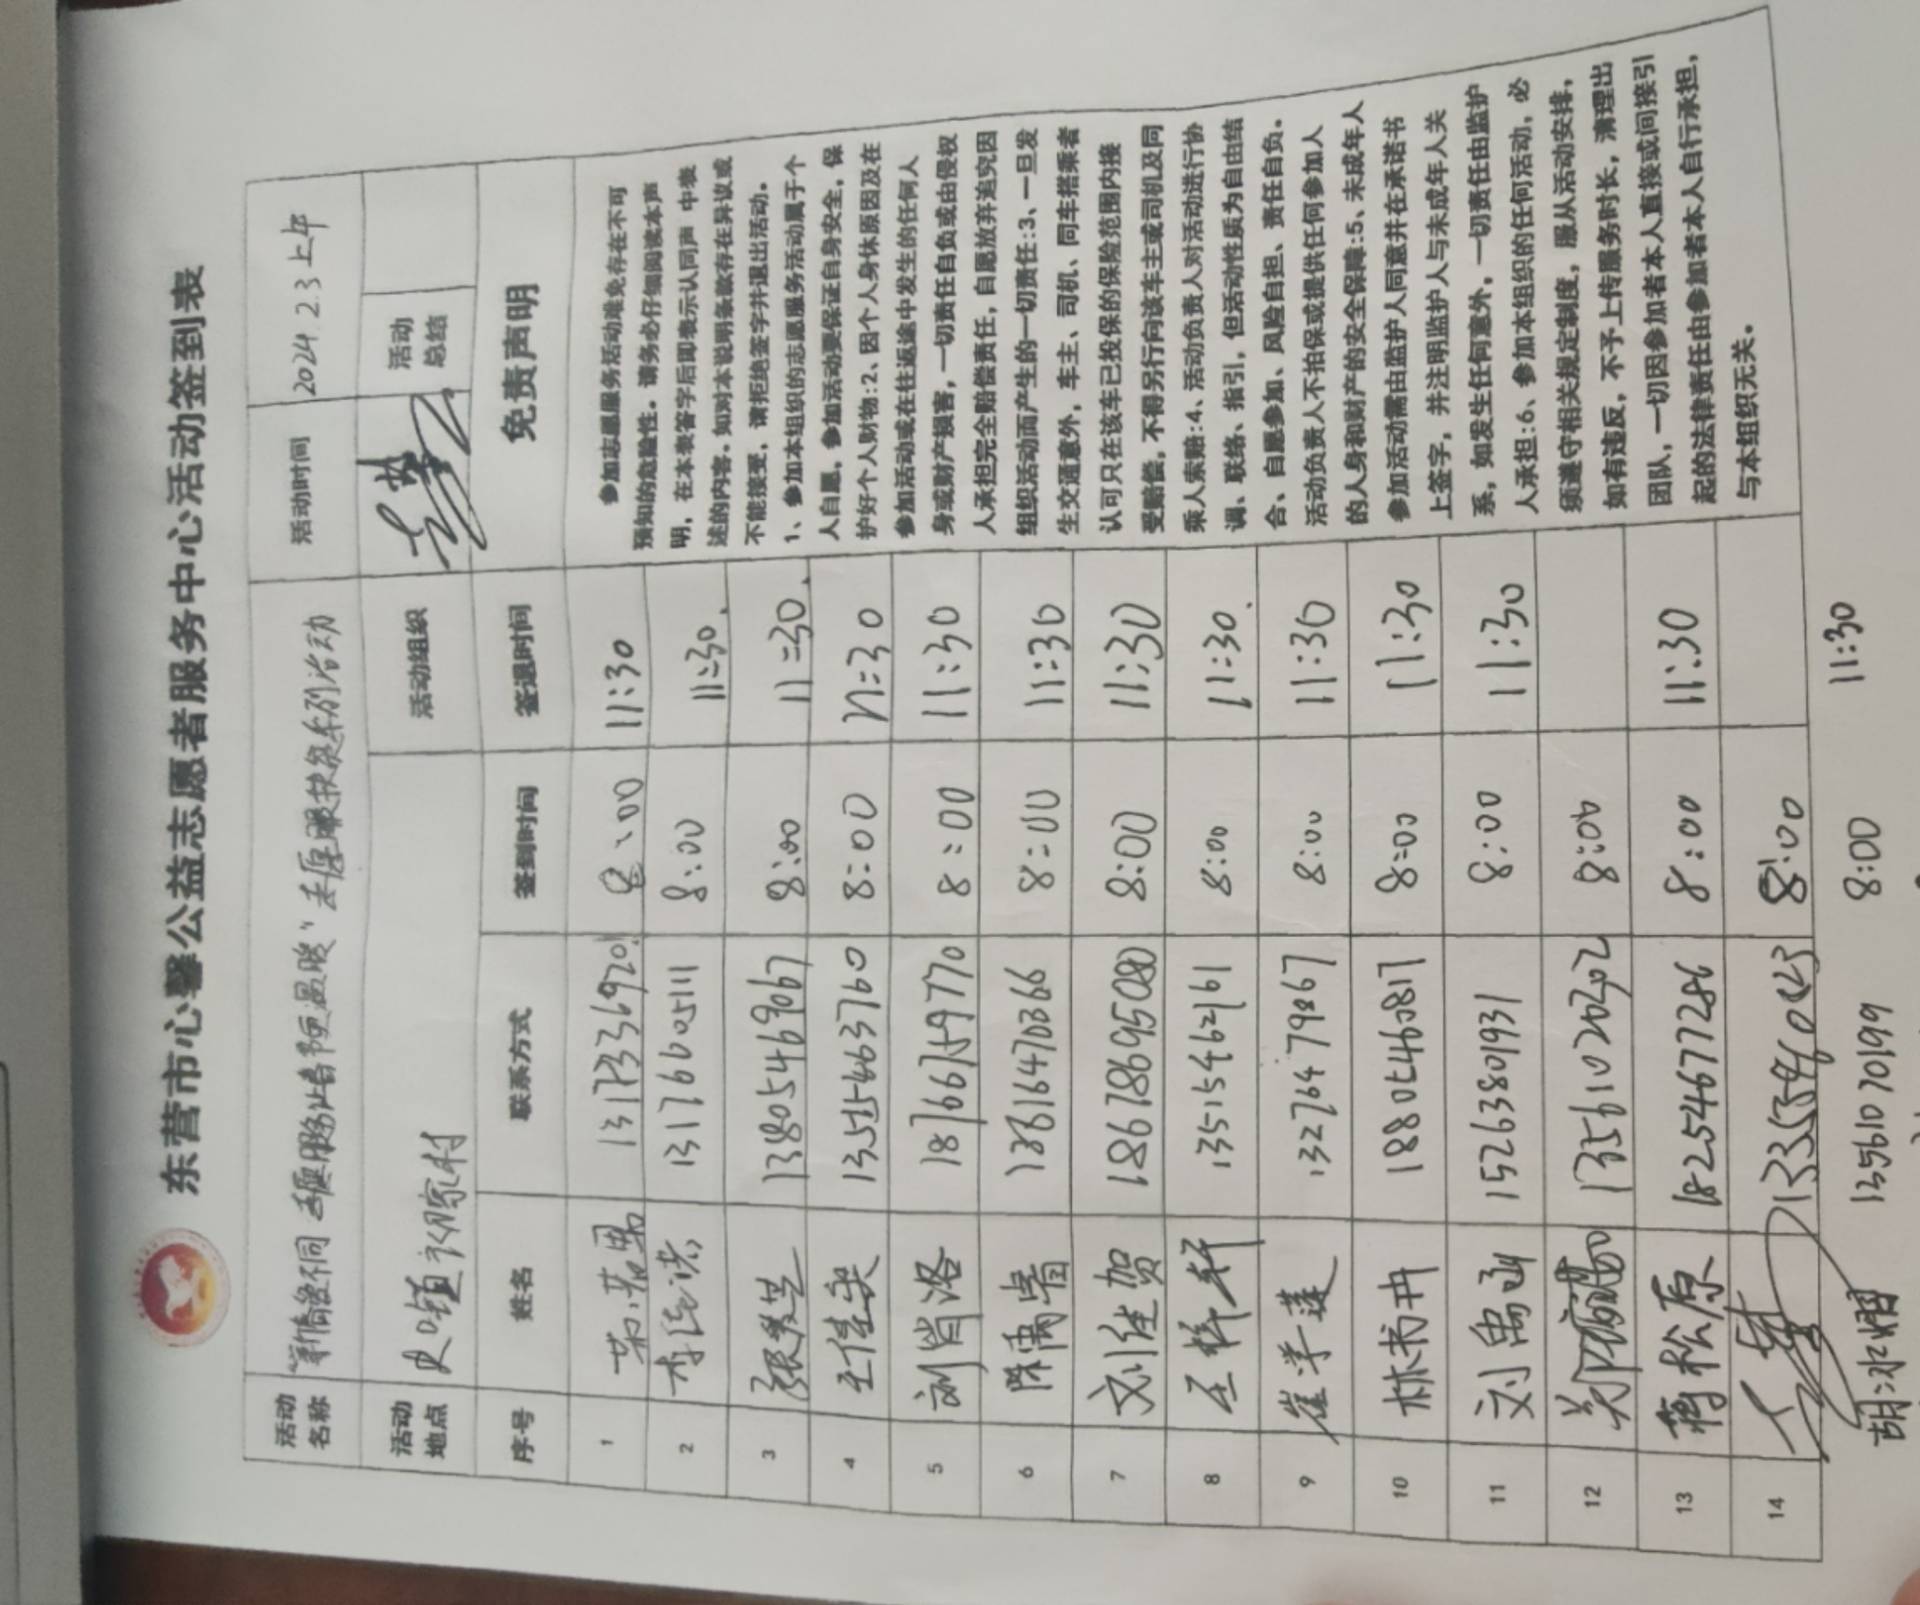 东营市心馨公益志愿者服务中心活动签到表
活动名称 活动时间 2024.2.3上午
活动地点 活动组织 活动总结
序号 姓名 联系方式 签到时间 签退时间 免责声明
1 8:00 11:30
2 13176605111 8:00 11:30
3 13805469067 8:00 11:30
4 王佳奕 8:00 11:30
5 刘肖洛 18766759770 8:00 11:30
6 陈禹睿 8:00 11:30
7 刘佳贺 18678695080 8:00 11:30
8 王梓轩 13515462161 8:00 11:30
9 崔学莲 8:00 11:30
10 林书冉 18805460817 8:00 11:30
11 刘禹函 15263801931 8:00 11:30
12 8:00
13 蒋松原 18254677286 8:00 11:30
14 8:00
胡冰娟 13561070199 8:00 11:30
参加志愿服务活动难免存在不可
预知的危险性。请务必仔细阅读本声
明，在本表签字后即表示认同声 中表
述的内容。如对本说明条款存在异议或
不能接受，请拒绝签字并退出活动。
1、参加本组织的志愿服务活动属于个
人自愿，参加活动要保证自身安全，保
护好个人财物:2、因个人身体原因及在
参加活动或在往返途中发生的任何人
身或财产损害，一切责任自负或由侵权
人承担完全赔偿责任，自愿放弃追究因
组织活动而产生的一切责任:3、一旦发
生交通意外，车主、司机、同车搭乘者
认可只在该车已投保的保险范围内接
受赔偿，不得另行向该车主或司机及同
乘人索赔:4、活动负责人对活动进行协
调、联络、指引，但活动性质为自由结
合、自愿参加、风险自担、责任自负。
活动负责人不担保或提供任何参加人
的人身和财产的安全保障:5、未成年人
参加活动需由监护人同意并在承诺书
上签字，并注明监护人与未成年人关
系，如发生任何意外，一切责任由监护
人承担:6、参加本组织的任何活动，必
须遵守相关规定制度，服从活动安排，
如有违反，不予上传服务时长，清理出
团队，一切因参加者本人直接或间接引
起的法律责任由参加者本人自行承担，
与本组织无关。